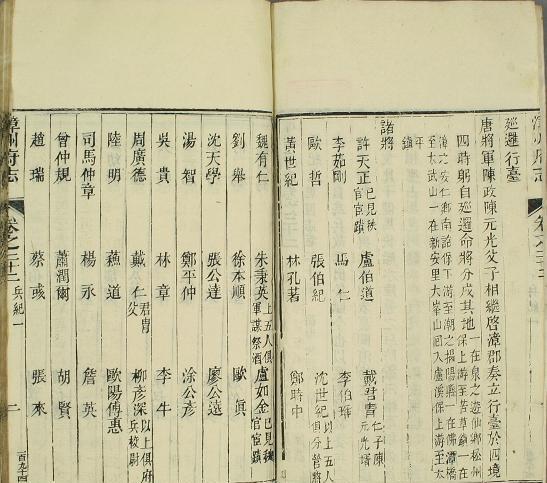 漳州府志
卷之二十二
巡邏行臺
唐將軍陳政陳元光父子相繼啓漳郡奏立行臺於四境
四時躬自巡邏命將分戍其地
一在泉之遊仙鄉松州
保上游至苦草鎮一在
漳之安仁鄉南詔
保下游至潮之揭陽縣一在佛潭橋
至太武山一在新安里大峯山回入盧溪保上游至太
平鎮
諸將
許天正已見秩官宦蹟
盧伯道
戴君胄仁子陳元光壻
李茹剛
馬仁
李伯
歐哲
張伯紀
沈世紀以上五人俱分營將
黃世紀
林孔著
鄭時中
魏有仁
朱秉英上五人俱軍謀祭酒
盧如金已見秩官宦蹟
劉舉
徐本順
歐眞
沈天學
張公達
廖公遠
湯智
鄭平仲
涂公彥
吳貴
林章
李牛
周廣德
戴仁君胄父
柳彥深以上俱府兵校尉
陸明
蘓道
歐陽傅惠
司馬仲章
楊永
詹英
曾仲規
蕭潤爾
胡賢
趙瑞
蔡彧
張來
漳州府志
卷之二十二
兵紀一
二